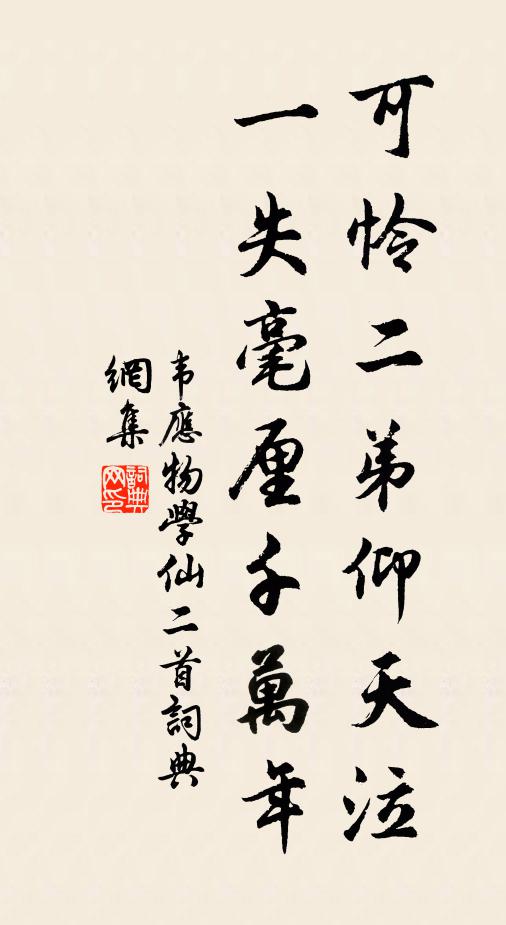 可怜二弟仰天泣
一失毫厘千萬年
韦應物學仙二首詞典
網集
詞典
网印